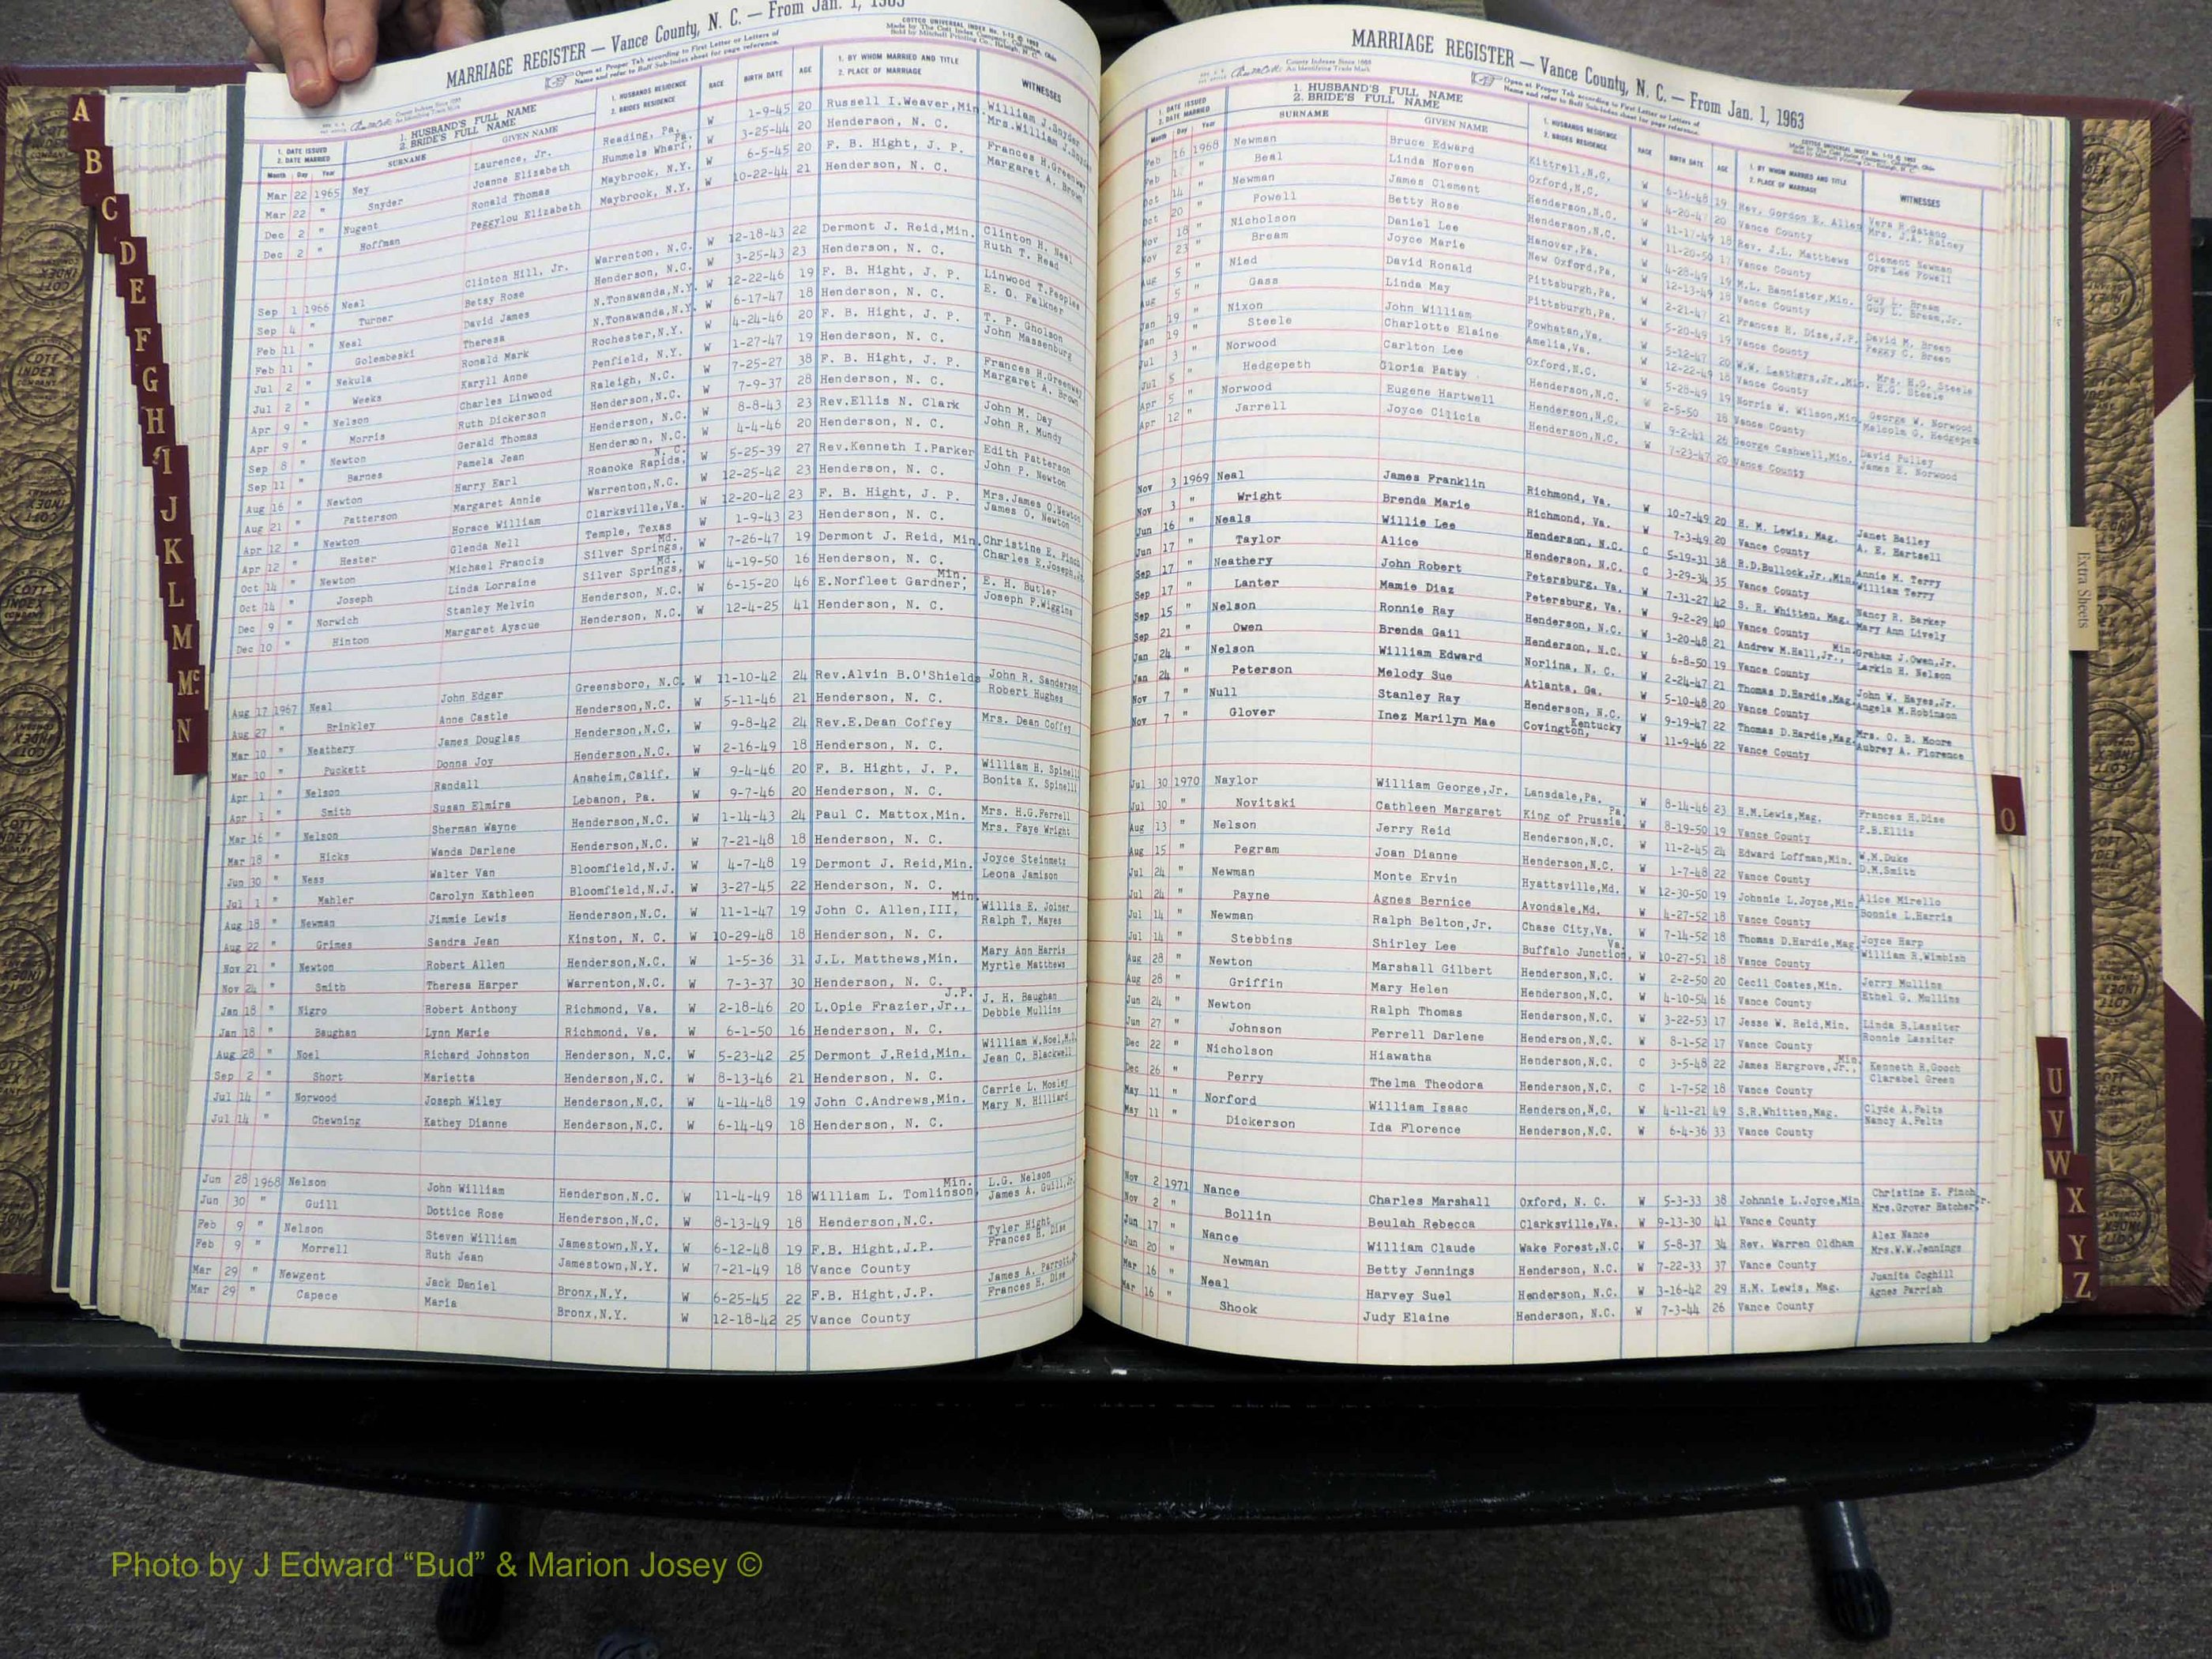 MARRIAGE REGISTER — Vance County, N. C. — From Jan. 1, 1963
Open at Proper Tab according to First Letter or Letters of
Name and refer to Buff Sub-Index sheet for page reference.
COTTCO UNIVERSAL INDEX
Made by The Cott Index Company, Columbus, Ohio
Sold by Mitchell Printing Co., Raleigh, N. C.
1. DATE ISSUED
2. DATE MARRIED
Month Day Year
1. HUSBAND'S FULL NAME
2. BRIDE'S FULL NAME
SURNAME GIVEN NAME
1. HUSBANDS RESIDENCE
2. BRIDES RESIDENCE
RACE BIRTH DATE AGE
1. BY WHOM MARRIED AND TITLE
2. PLACE OF MARRIAGE
WITNESSES
Mar 22 1965 Ney Laurence, Jr. Reading, Pa. W 1-9-45 20 Russell I.Weaver,Min. William J.Snyder
Mar 22 " Snyder Joanne Elizabeth Hummels Wharf, Pa. W 3-25-44 20 Henderson, N. C. Mrs.William J.Snyder
Dec 2 " Nugent Ronald Thomas Maybrook, N.Y. W 6-5-45 20 F. B. Hight, J. P. Frances H.Greenway
Dec 2 " Hoffman Peggylou Elizabeth Maybrook, N.Y. W 10-22-44 21 Henderson, N. C. Margaret A. Brown
Sep 1 1966 Neal Clinton Hill, Jr. Warrenton, N.C. W 12-18-43 22 Dermont J. Reid,Min. Clinton H. Neal
Sep 4 " Turner Betsy Rose Henderson, N.C. W 3-25-43 23 Henderson, N. C. Ruth T. Read
Feb 11 " Neal David James N.Tonawanda,N.Y. W 12-22-46 19 F. B. Hight, J. P. Linwood T.Peoples
Feb 11 " Golembeski Theresa N.Tonawanda,N.Y. W 6-17-47 18 Henderson, N. C. E. O. Falkner
Jul 2 " Nekula Ronald Mark Rochester,N.Y. W 4-24-46 20 F. B. Hight, J. P. T. P. Gholson
Jul 2 " Weeks Karyll Anne Penfield, N.Y. W 1-27-47 19 Henderson, N. C. John Massenburg
Apr 9 " Nelson Charles Linwood Raleigh, N.C. W 7-25-27 38 F. B. Hight, J. P. Frances H.Greenway
Apr 9 " Morris Ruth Dickerson Henderson,N.C. W 7-9-37 28 Henderson, N. C. Margaret A. Brown
Sep 8 " Newton Gerald Thomas Henderson, N.C. W 8-8-43 23 Rev.Ellis N. Clark John M. Day
Sep 11 " Barnes Pamela Jean Henderson, N.C. W 4-4-46 20 Henderson, N. C. John R. Mundy
Aug 16 " Newton Harry Earl Roanoke Rapids, N. C. W 5-25-39 27 Rev.Kenneth I.Parker Edith Patterson
Aug 21 " Patterson Margaret Annie Warrenton,N.C. W 12-25-42 23 Henderson, N. C. John P. Newton
Apr 12 " Newton Horace William Clarksville,Va. W 12-20-42 23 F. B. Hight, J. P. Mrs.James O.Newton
Apr 12 " Hester Glenda Nell Temple, Texas W 1-9-43 23 Henderson, N. C. James O. Newton
Oct 14 " Newton Michael Francis Silver Springs, Md. W 7-26-47 19 Dermont J. Reid, Min. Christine E. Finch
Oct 14 " Joseph Linda Lorraine Silver Springs, Md. W 4-19-50 16 Henderson, N. C. Charles E.Joseph
Dec 9 " Norwich Stanley Melvin Henderson, N.C. W 6-15-20 46 E.Norfleet Gardner, Min. E. H. Butler
Dec 10 " Hinton Margaret Ayscue Henderson, N.C. W 12-4-25 41 Henderson, N. C. Joseph P.Wiggins
Aug 17 1967 Neal John Edgar Greensboro, N.C. W 11-10-42 24 Rev.Alvin B.O'Shields John R. Sanderson
Aug 27 " Brinkley Anne Castle Henderson,N.C. W 5-11-46 21 Henderson, N. C. Robert Hughes
Mar 10 " Neathery James Douglas Henderson,N.C. W 9-8-42 24 Rev.E.Dean Coffey Mrs. Dean Coffey
Mar 10 " Puckett Donna Joy Henderson,N.C. W 2-16-49 18 Henderson, N. C.
Apr 1 " Nelson Randall Anaheim,Calif. W 9-4-46 20 F. B. Hight, J. P. William H. Spinelli
Apr 1 " Smith Susan Elmira Lebanon, Pa. W 9-7-46 20 Henderson, N. C. Bonita K. Spinelli
Mar 16 " Nelson Sherman Wayne Henderson,N.C. W 1-14-43 24 Paul C. Mattox,Min. Mrs. H.G.Ferrell
Mar 18 " Hicks Wanda Darlene Henderson,N.C. W 7-21-48 18 Henderson, N. C. Mrs. Faye Wright
Jun 30 " Ness Walter Van Bloomfield,N.J. W 4-7-48 19 Dermont J. Reid,Min. Joyce Steinmetz
Jul 1 " Mahler Carolyn Kathleen Bloomfield,N.J. W 3-27-45 22 Henderson, N. C. Leona Jamison
Aug 18 " Newman Jimmie Lewis Henderson,N.C. W 11-1-47 19 John C. Allen,III, Min. Willis E. Joiner
Aug 22 " Grimes Sandra Jean Kinston, N. C. W 10-29-48 18 Henderson, N. C. Ralph T. Mayes
Nov 21 " Newton Robert Allen Henderson,N.C. W 1-5-36 31 J.L. Matthews,Min. Mary Ann Harris
Nov 24 " Smith Theresa Harper Warrenton,N.C. W 7-3-37 30 Henderson, N. C. Myrtle Matthews
Jan 18 " Nigro Robert Anthony Richmond, Va. W 2-18-46 20 L.Opie Frazier,Jr., J.P. J. H. Baughan
Jan 18 " Baughan Lynn Marie Richmond, Va. W 6-1-50 16 Henderson, N. C. Debbie Mullins
Aug 28 " Noel Richard Johnston Henderson, N.C. W 5-23-42 25 Dermont J.Reid,Min. William W.Noel
Sep 2 " Short Marietta Henderson,N.C. W 8-13-46 21 Henderson, N. C. Jean C. Blackwell
Jul 14 " Norwood Joseph Wiley Henderson,N.C. W 4-14-48 19 John C.Andrews,Min. Carrie L. Mosley
Jul 14 " Chewning Kathey Dianne Henderson,N.C. W 6-14-49 18 Henderson, N. C. Mary N. Hilliard
Jun 28 1968 Nelson John William Henderson,N.C. W 11-4-49 18 William L. Tomlinson, Min. L.G. Nelson
Jun 30 " Guill Dottice Rose Henderson,N.C. W 8-13-49 18 Henderson,N.C. James A. Guill,Jr.
Feb 9 " Nelson Steven William Jamestown,N.Y. W 6-12-48 19 F.B. Hight,J.P. Tyler Hight
Feb 9 " Morrell Ruth Jean Jamestown,N.Y. W 7-21-49 18 Vance County Frances H. Dise
Mar 29 " Newgent Jack Daniel Bronx,N.Y. W 6-25-45 22 F.B. Hight,J.P. James A. Parrott
Mar 29 " Capece Maria Bronx,N.Y. W 12-18-42 25 Vance County Frances H. Dise
MARRIAGE REGISTER — Vance County, N. C. — From Jan. 1, 1963
Open at Proper Tab according to First Letter or Letters of
Name and refer to Buff Sub-Index sheet for page reference.
1. DATE ISSUED
2. DATE MARRIED
Month Day Year
1. HUSBAND'S FULL NAME
2. BRIDE'S FULL NAME
SURNAME GIVEN NAME
1. HUSBANDS RESIDENCE
2. BRIDES RESIDENCE
RACE BIRTH DATE AGE
1. BY WHOM MARRIED AND TITLE
2. PLACE OF MARRIAGE
WITNESSES
Feb 16 1968 Newman Bruce Edward Kittrell,N.C. W 6-16-48 19 Rev. Gordon E. Allen Vera R.Gatano
Feb " Beal Linda Noreen Oxford,N.C. W 20 Vance County Mrs. J.A. Rainey
Oct 14 " Newman James Clement Henderson,N.C. W 11-17-49 18 Rev. J.L. Matthews Clement Newman
Oct 20 " Powell Betty Rose Henderson,N.C. W 11-20-50 17 Vance County Ora Lee Powell
Nov 18 " Nicholson Daniel Lee Hanover,Pa. W 4-28-49 19 M.L. Bannister,Min. Guy L. Bream
Nov 23 " Bream Joyce Marie New Oxford,Pa. W 12-13-49 18 Vance County Guy L. Bream,Jr.
Aug 5 " Nied David Ronald Pittsburgh,Pa. W 2-21-47 21 Frances H. Dise,J.P. David M. Breen
Aug 5 " Gass Linda May Pittsburgh,Pa. W 5-20-49 19 Vance County Peggy C. Breen
Jan 19 " Nixon John William Powhatan,Va. W 5-12-47 20 W.W. Leathers,Jr.,Min. Mrs. H.G. Steele
Jan 19 " Steele Charlotte Elaine Amelia,Va. W 12-22-49 18 Vance County H.G. Steele
Jul 3 " Norwood Carlton Lee Oxford,N.C. W 5-28-49 19 Norris W. Wilson,Min. George W. Norwood
Jul 5 " Hedgepeth Gloria Patsy Henderson,N.C. W 2-5-50 18 Vance County Malcolm G. Hedgepeth
Apr 5 " Norwood Eugene Hartwell Henderson,N.C. W 9-2-41 26 George Cashwell,Min. David Pulley
Apr 12 " Jarrell Joyce Cilicia Henderson,N.C. W 7-23-47 20 Vance County James E. Norwood
Nov 3 1969 Neal James Franklin Richmond, Va. W 10-7-49 20 H. M. Lewis, Mag. Janet Bailey
Nov 3 " Wright Brenda Marie Richmond, Va. W 7-3-49 20 Vance County A. E. Hartsell
Jun 16 " Neals Willie Lee Henderson, N.C. C 5-19-31 38 R.D.Bullock,Jr.,Min. Annie M. Terry
Jun 17 " Taylor Alice Henderson, N.C. C 3-29-34 35 Vance County William Terry
Sep 17 " Neathery John Robert Petersburg, Va. W 7-31-27 42 S. R. Whitten, Mag. Nancy R. Barker
Sep 17 " Lanter Mamie Diaz Petersburg, Va. W 9-2-29 40 Vance County Mary Ann Lively
Sep 15 " Nelson Ronnie Ray Henderson, N.C. W 3-20-48 21 Andrew M.Hall,Jr., Min. Graham J.Owen,Jr.
Sep 21 " Owen Brenda Gail Henderson, N.C. W 6-8-50 19 Vance County Larkin H. Nelson
Jan 24 " Nelson William Edward Norlina, N. C. W 2-24-47 21 Thomas D.Hardie,Mag. John W. Hayes,Jr.
Jan 24 " Peterson Melody Sue Atlanta, Ga. W 5-10-48 20 Vance County Angela M.Robinson
Nov 7 " Null Stanley Ray Henderson, N.C. W 9-19-47 22 Thomas D.Hardie,Mag. Mrs. O. B. Moore
Nov 7 " Glover Inez Marilyn Mae Covington, Kentucky W 11-9-46 22 Vance County Aubrey A. Florence
Jul 30 1970 Naylor William George,Jr. Lansdale,Pa. W 8-14-46 23 H.M.Lewis,Mag. Frances H.Dise
Jul 30 " Novitski Cathleen Margaret King of Prussia, Pa. W 8-19-50 19 Vance County P.B.Ellis
Aug 13 " Nelson Jerry Reid Henderson,N.C. W 11-2-45 24 Edward Loffman,Min. W.M.Duke
Aug 15 " Pegram Joan Dianne Henderson,N.C. W 1-7-48 22 Vance County D.M.Smith
Jul 24 " Newman Monte Ervin Hyattsville,Md. W 12-30-50 19 Johnnie L.Joyce,Min. Alice Mirello
Jul 24 " Payne Agnes Bernice Avondale,Md. W 4-27-52 18 Vance County Bonnie L.Harris
Jul 14 " Newman Ralph Belton,Jr. Chase City,Va. W 7-14-52 18 Thomas D.Hardie,Mag. Joyce Harp
Jul 14 " Stebbins Shirley Lee Buffalo Junction, Va. W 10-27-51 18 Vance County William R.Wimbish
Aug 28 " Newton Marshall Gilbert Henderson,N.C. W 2-2-50 20 Cecil Coates,Min. Jerry Mullins
Aug 28 " Griffin Mary Helen Henderson,N.C. W 4-10-54 16 Vance County Ethel G. Mullins
Jun 24 " Newton Ralph Thomas Henderson,N.C. W 3-22-53 17 Jesse W. Reid,Min. Linda B.Lassiter
Jun 27 " Johnson Ferrell Darlene Henderson,N.C. W 8-1-52 17 Vance County Ronnie Lassiter
Dec 22 " Nicholson Hiawatha Henderson,N.C. C 3-5-48 22 James Hargrove,Jr., Min. Kenneth R.Gooch
Dec 26 " Perry Thelma Theodora Henderson,N.C. C 1-7-52 18 Vance County Clarabel Green
May 11 " Norford William Isaac Henderson,N.C. W 4-11-21 49 S.R.Whitten,Mag. Clyde A.Felts
May 11 " Dickerson Ida Florence Henderson,N.C. W 6-4-36 33 Vance County Nancy A.Felts
Nov 2 1971 Nance Charles Marshall Oxford, N. C. W 5-3-33 38 Johnnie L.Joyce,Min. Christine E. Finch
Nov 2 " Bollin Beulah Rebecca Clarksville,Va. W 9-13-30 41 Vance County Mrs.Grover Hatcher, Jr.
Jun 17 " Nance William Claude Wake Forest,N.C. W 5-8-37 34 Rev. Warren Oldham Alex Nance
Jun 20 " Newman Betty Jennings Henderson, N.C. W 7-22-33 37 Vance County Mrs.W.W.Jennings
Mar 16 " Neal Harvey Suel Henderson, N.C. W 3-16-42 29 H.M. Lewis, Mag. Juanita Coghill
Mar 16 " Shook Judy Elaine Henderson, N.C. W 7-3-44 26 Vance County Agnes Parrish
A
B
C
D
E
F
G
H
I
J
K
L
M
Mc
N
O
Extra Sheets
U
V
W
X
Y
Z
COTT INDEX COMPANY
Photo by J Edward “Bud” & Marion Josey ©